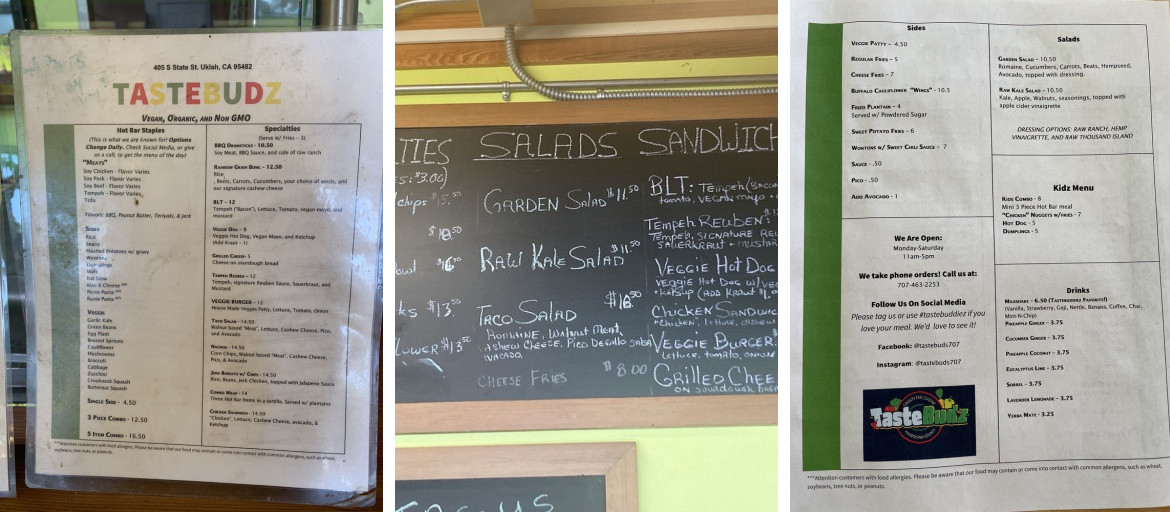 405 S State St. Ukiah, CA 95482
TASTEBUDZ
Vegan, Organic, and Non GMO
Hot Bar Staples
(This is what we are known for! Options
Change Daily. Check Social Media, or give
us a call, to get the menu of the day)
"Meats"
Soy Chicken - Flavor Varies
Soy Pork - Flavor Varies
Soy Beef - Flavor Varies
Tempeh - Flavor Varies
Tofu
Flavors: BBQ, Peanut Butter, Teriyaki, & Jerk
Sides
Rice
Beans
Mashed Potatoes w/ gravy
Wontons
Dumplings
Mac & Cheese
Pesto Pasta
Veggie
Garlic Kale
Green Beans
Egg Plant
Brussel Sprouts
Cauliflower
Mushrooms
Broccoli
Cabbage
Zucchini
Crookneck Squash
Butternut Squash
Single Side - 4.50
3 Piece Combo - 12.50
5 Item Combo - 16.50
Specialties
(Serve w/ Fries - 3)
BBQ Drumsticks - 10.50
Soy Meat, BBQ, and side of raw ranch
Rainbow Grain Bowl - 12.50
Rice,
, Beets, Carrots, Cucumbers, your choice of seeds, and
our signature cashew cheese
BLT - 12
Tempeh ("Bacon"), Lettuce, Tomato, vegan mayo, and
mustard
Veggie Dog - 5
Veggie Hot Dog, Vegan Mayo, and Ketchup
(Add Kraut - 1)
Grilled Cheese- 5
Cheese on sourdough bread
Tempeh Reuben - 12
Tempeh, signature Reuben Sauce, Sauerkraut, and
Mustard
VEGGIE BURGER - 12
House Made Veggie Patty, Lettuce, Tomato, Onion
Taco Salad - 14.50
Walnut based "Meat", Lettuce, Cashew Cheese, Pico,
and Avocado
Nachos - 14.50
Corn Chips, Walnut based "Meat", Cashew Cheese,
Pico, & Avocado
Jerk Burrito w/ Chips - 14.50
Rice, Beans, Jerk Chicken, topped with Jalapeno Sauce
Combo Wrap - 14
Three Hot Bar items in a tortilla. Served w/ plantains
Chicken Sandwich - 14.50
"Chicken", Lettuce, Cashew Cheese, avocado, &
Ketchup
***Attention customers with food allergies. Please be aware that our food may contain or come into contact with common allergens, such as wheat,
soybeans, tree nuts, or peanuts.
TIES
s: $3.00)
chips $15.50
$18.50
owl $16.50
ks $13.50
lower $13.50
SALADS
GARDEN SALAD $11.50
RAW KALE SALAD $11.50
TACO SALAD $16.50
ROMAINE, WALNUT MEAT,
CASHEW CHEESE, PICO DEGALLO SALSA
CHEESE FRIES $8.00
SANDWICH
BLT: TEMPEH (BACON
TOMATO, VEGAN MAYO +
TEMPEH REUBEN:
TEMPEH, SIGNATURE REU
SAUERKRAUT + MUSTAR
VEGGIE HOT DOG
VEGGIE HOT DOG W/ VEG
+ KETSUP (ADD KRAUT $1.0
CHICKEN SANDWIC
"CHICKEN, LETTUCE, CASHEW
VEGGIE BURGER:
LETTUCE, TOMATO, ONION
GRILLED CHEE
ON SOURDOUGH BREA
Sides
Veggie Patty - 4.50
Regular Fries - 5
Cheese Fries - 7
Buffalo Cauliflower "Wings" - 10.5
Fried Plantain - 4
Served w/ Powdered Sugar
Sweet Potato Fries - 6
Wontons w/ Sweet Chili Sauce - 7
Sauce - .50
Pico - .50
Add Avocado - 1
We Are Open:
Monday-Saturday
11am-5pm
We take phone orders! Call us at:
707-463-2253
Follow Us On Social Media
Please tag us or use #tastebuddiez if you
love your meal. We'd love to see it!
Facebook: @tastebuds707
Instagram: @tastebuds707
TasteBudz
Salads
Garden Salad - 10.50
Romaine, Cucumbers, Carrots, Beats, Hempseed,
Avocado, topped with dressing.
Raw Kale Salad - 10.50
Kale, Apple, Walnuts, seasonings, topped with
apple cider vinaigrette
DRESSING OPTIONS: RAW RANCH, HEMP
VINAIGRETTE, AND RAW THOUSAND ISLAND
Kidz Menu
Kids Combo - 8
Mini 3 Piece Hot Bar meal
"Chicken" Nuggets w/fries - 7
Hot Dog - 5
Dumplings - 5
Drinks
Milkshake - 6.50 (Tastebuddiez Favorite!)
(Vanilla, Strawberry, Goji, Nettle, Banana, Coffee, Chai,
Mint-N-Chip)
Pineapple Ginger - 3.75
Cucumber Ginger - 3.75
Pineapple Coconut - 3.75
Eucalyptus Lime - 3.75
Sorrel - 3.75
Lavender Lemonade - 3.75
Yerba Mate - 3.25
***Attention customers with food allergies. Please be aware that our food may contain or come into contact with common allergens, such as wheat,
soybeans, tree nuts, or peanuts.